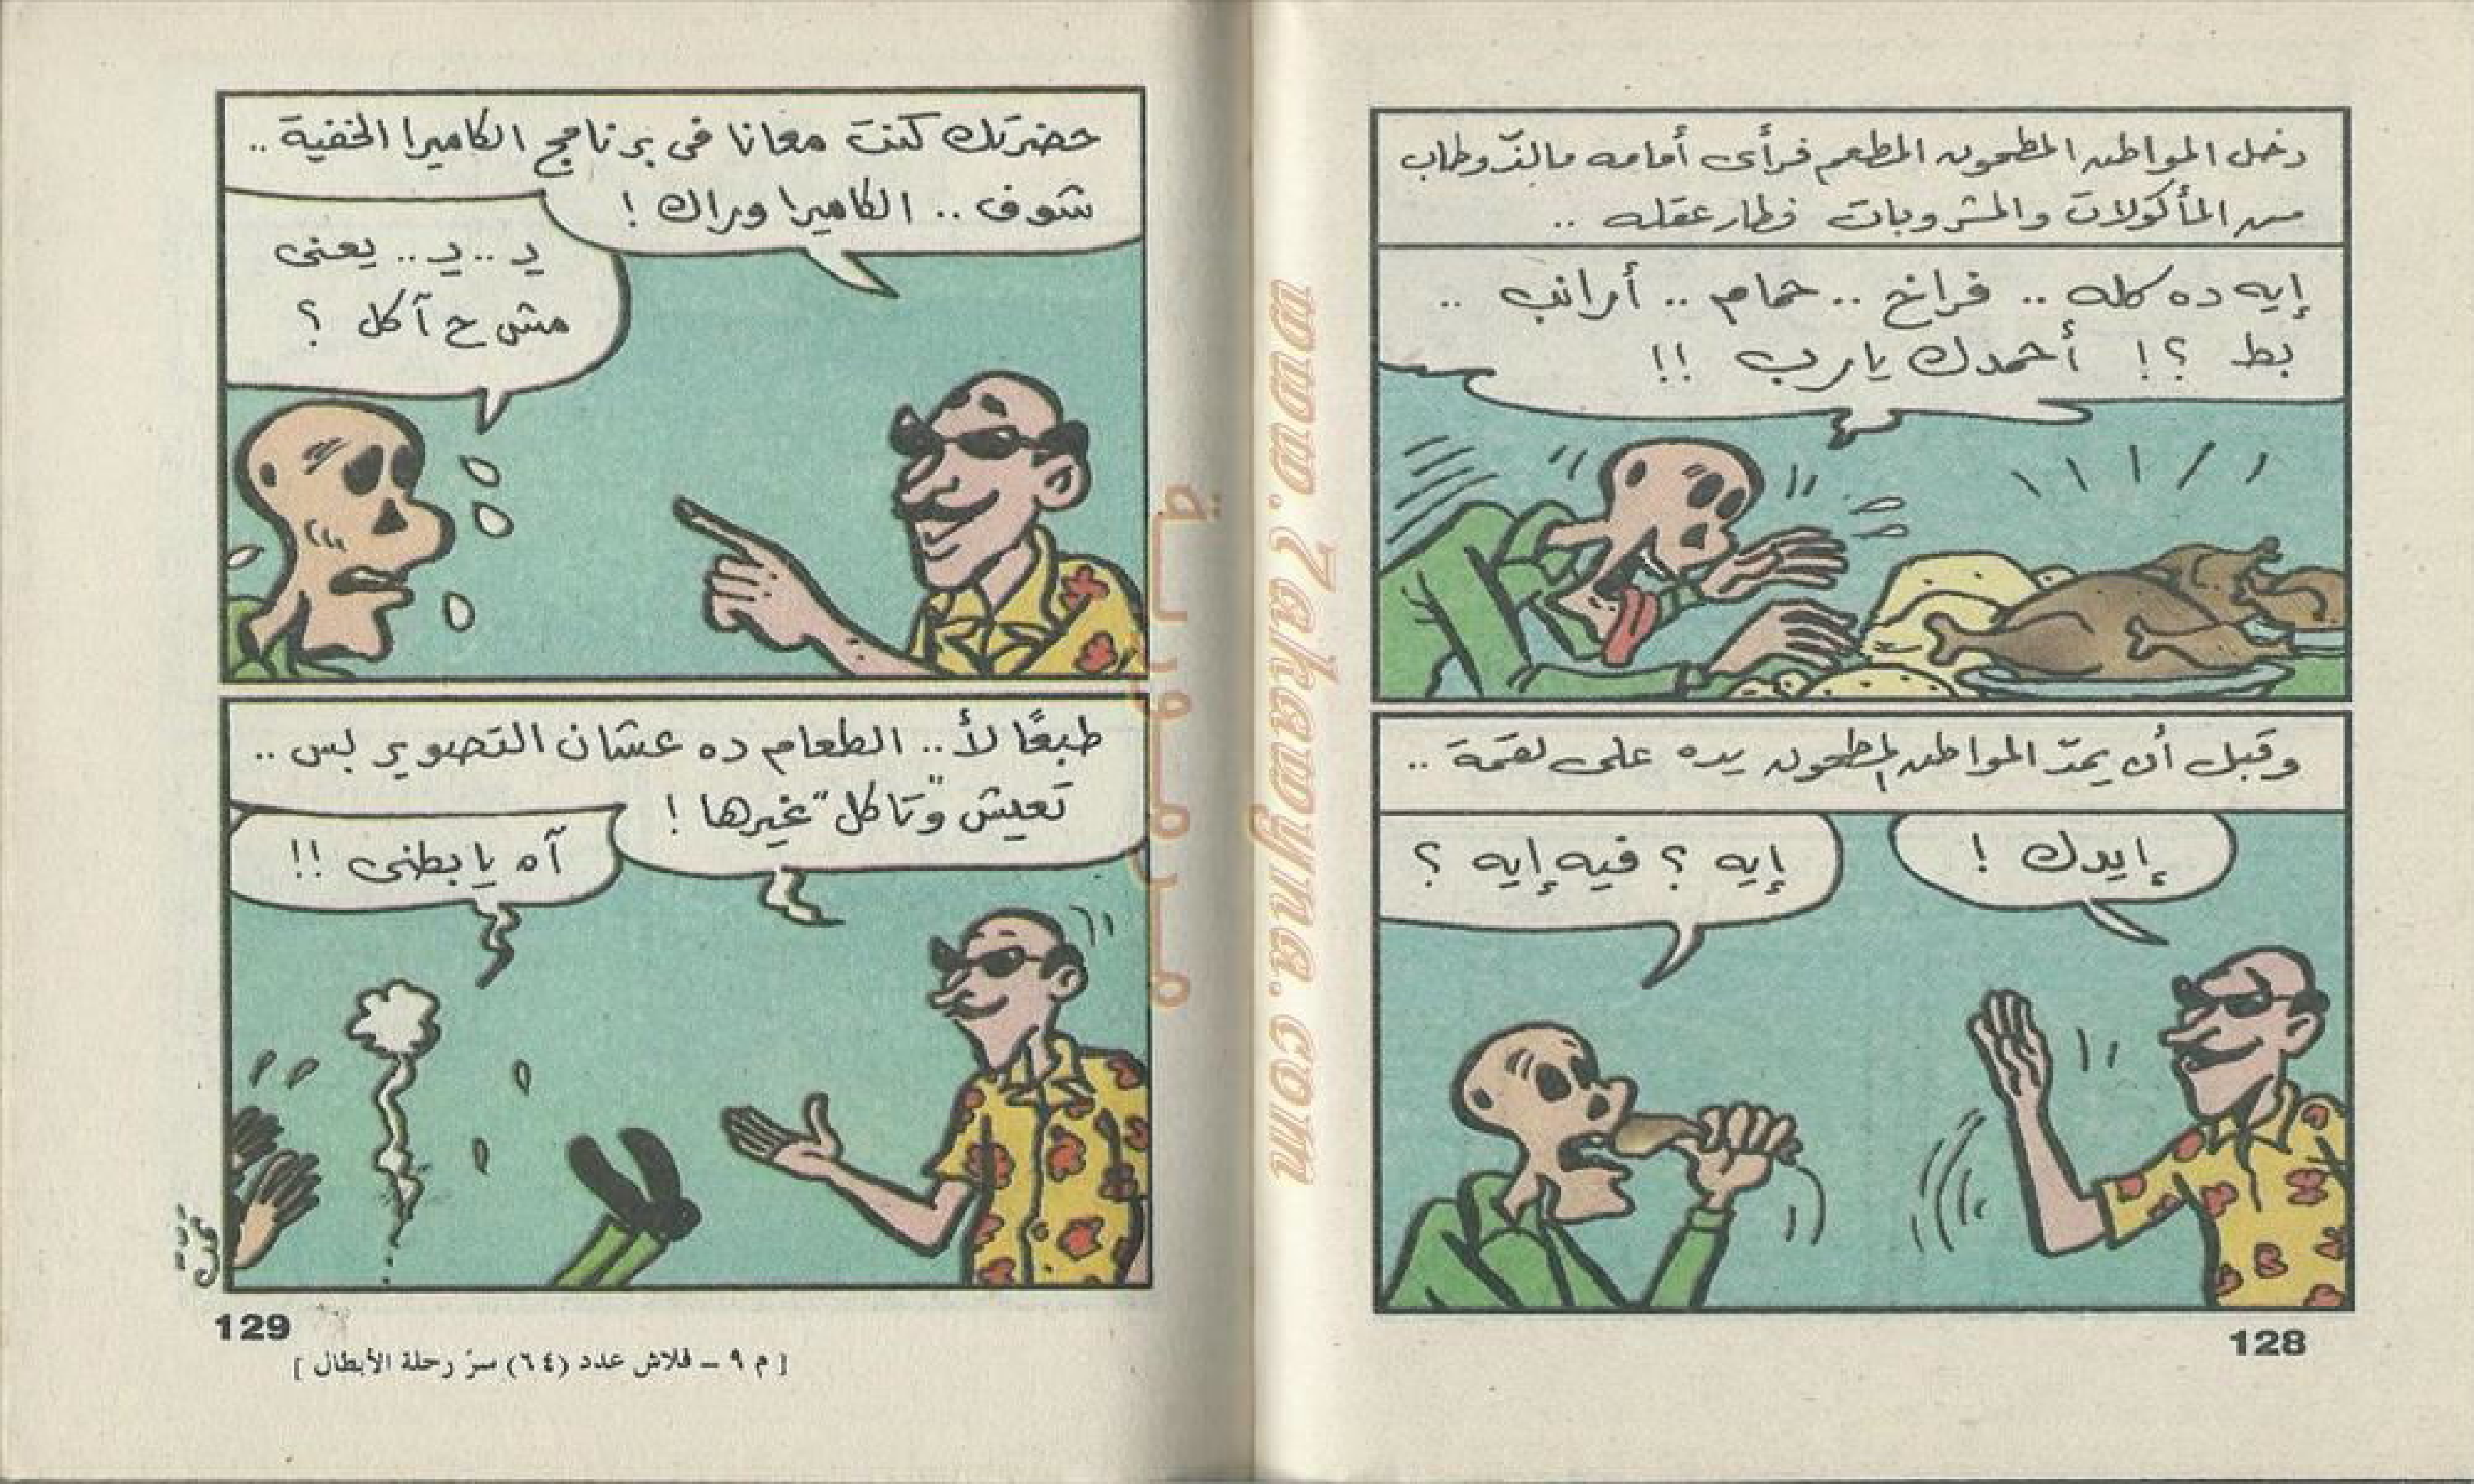 دخل المواطن المطحون المطعم فرأى أمامه مالذّ وطاب
من المأكولات والمشروبات فطار عقله ..
إيه ده كله .. فراخ .. حمام .. أرانب ..
بط ؟! أحمدك يارب !!
وقبل أن يمدّ المواطن المطحون يده على لقمة ..
إيدك !
إيه ؟ فيه إيه ؟
128
حضرتك كنت معانا فى برنامج الكاميرا الخفية ..
شوف .. الكاميرا وراك !
يـ .. يـ .. يعنى
مش ح آكل ؟
طبعًا لأ .. الطعام ده عشان التصوير بس ..
تعيش "وتاكل" غيرها !
آه يا بطنى !!
129
[ م ٩ – فلاش عدد (٦٤) سرّ رحلة الأبطال ]
www.7akawyna.com